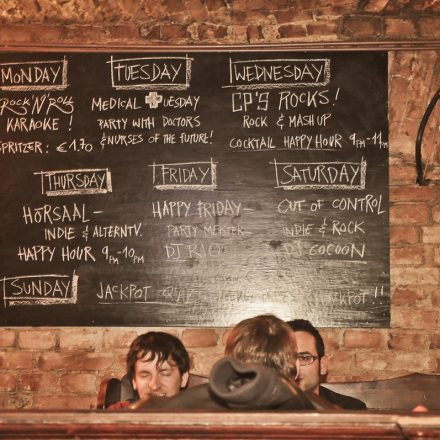 MONDAY
ROCK'N'ROLL
KARAOKE!
SPRITZER: €1.70
TUESDAY
MEDICAL TUESDAY
PARTY WITH DOCTORS
& NURSES OF THE FUTURE!
WEDNESDAY
CP'S ROCKS!
ROCK & MASHUP
COCKTAIL HAPPY HOUR 9PM-11PM
THURSDAY
HÖRSAAL -
INDIE & ALTERNTV.
HAPPY HOUR 9PM-10PM
FRIDAY
HAPPY FRIDAY -
PARTY MEISTER
DJ
SATURDAY
OUT OF CONTROL
INDIE & ROCK
DJ COCOON
SUNDAY
JACKPOT JACKPOT!!